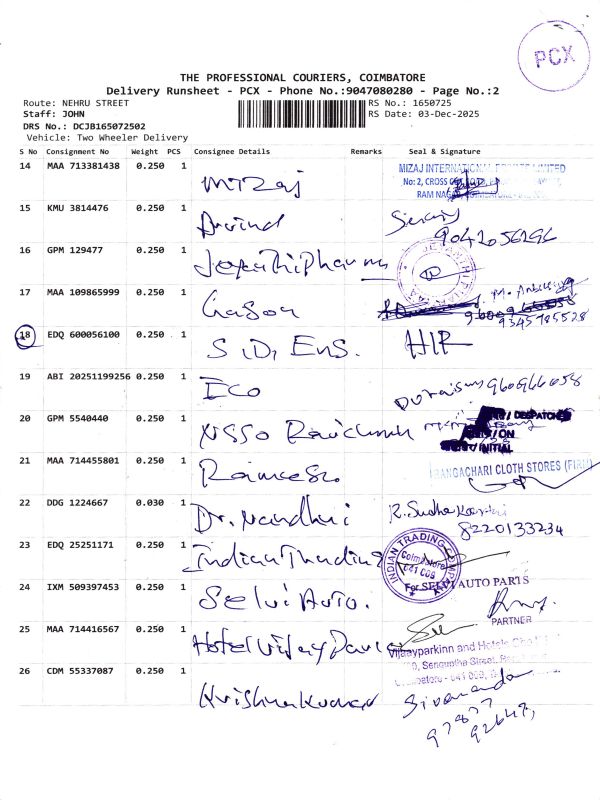 PCX
THE PROFESSIONAL COURIERS, COIMBATORE
Delivery Runsheet - PCX - Phone No.:9047080280 - Page No.:2
Route: NEHRU STREET
RS No.: 1650725
Staff: JOHN
RS Date: 03-Dec-2025
DRS No.: DCJB165072502
Vehicle: Two Wheeler Delivery
S No Consignment No Weight PCS Consignee Details Remarks Seal & Signature
14 MAA 713381438 0.250 1
MIZAJ INTERNATIONAL PRIVATE LIMITED
No: 2, CROSS
RAM NAGAR, COIMBATORE
Mizaj
15 KMU 3814476 0.250 1
Arvind
9042056296
16 GPM 129477 0.250 1
17 MAA 109865999 0.250 1
9345785528
18 EDQ 600056100 0.250 1
S.D. Ens.
19 ABI 20251199256 0.250 1
Eco
Duraisamy 960966058
20 GPM 5540440 0.250 1
DESPATCHED
/ON
/INITIAL
21 MAA 714455801 0.250 1
Ramesh
RANGACHARI CLOTH STORES (FIRM)
22 DDG 1224667 0.030 1
Dr. Nandhini
8220133234
23 EDQ 25251171 0.250 1
Indian Trading
INDIAN TRADING COMPANY
Coimbatore
641 009
24 IXM 509397453 0.250 1
Selvi Auto.
For SELVI AUTO PARTS
PARTNER
25 MAA 714416567 0.250 1
Hotel Vijay Park
Vijayparkinn and Hotels
Senguptha Street,
Coimbatore - 641 009,
26 CDM 55337087 0.250 1
Krishnakumar
Sivananda
97877
92647